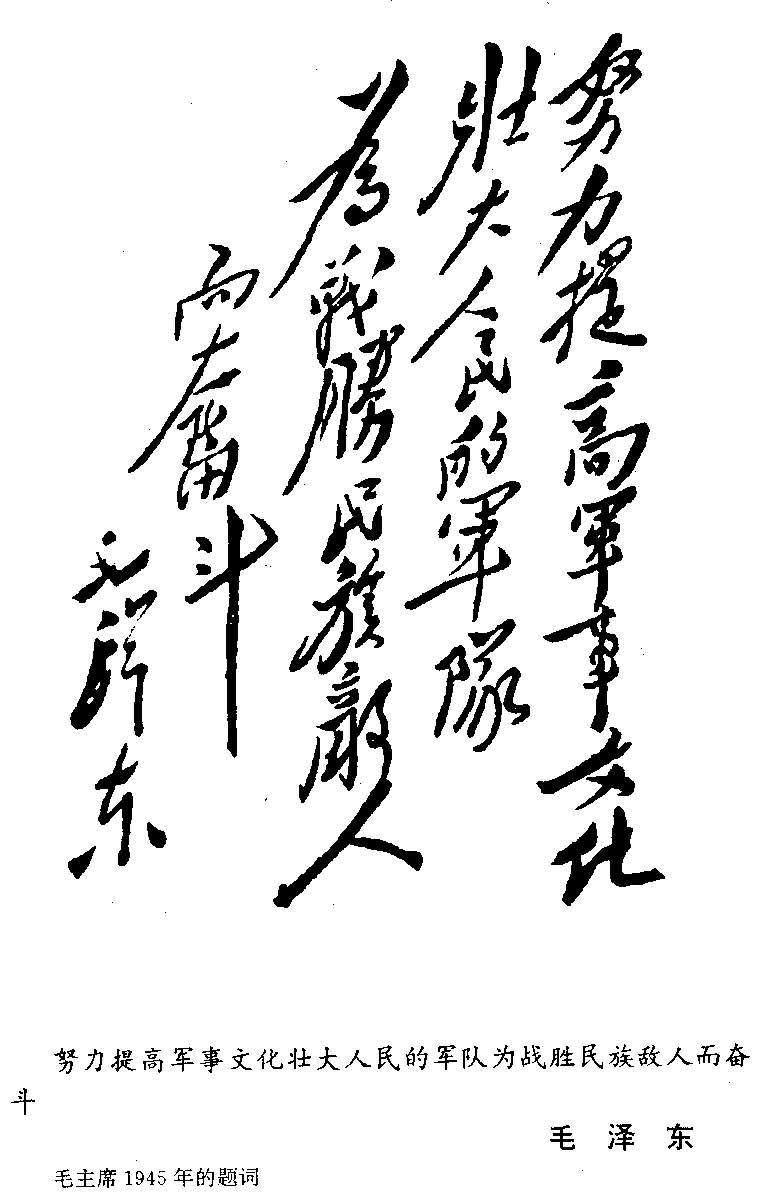 努力提高軍事文化
壯大人民的軍隊
為戰勝民族敵人
而奮斗
毛澤东
努力提高军事文化壮大人民的军队为战胜民族敌人而奋
斗
毛泽东
毛主席1945年的题词